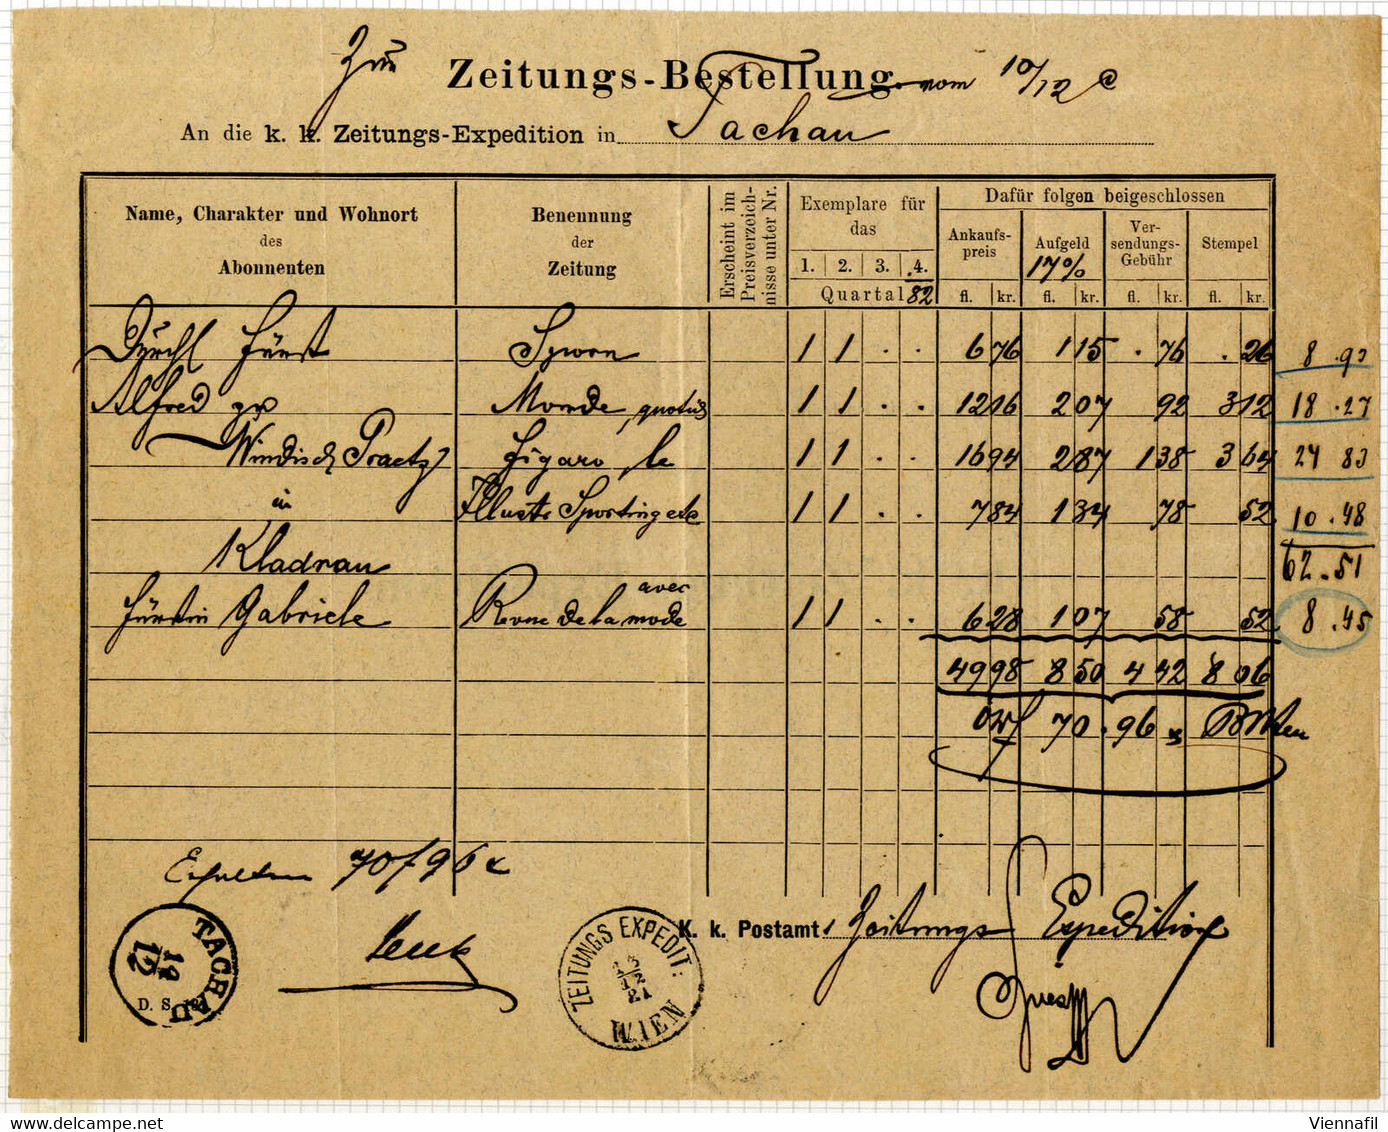 Zur Zeitungs-Bestellung vom 10/12
An die k. k. Zeitungs-Expedition in Tachau
Name, Charakter und Wohnort
des
Abonnenten
Benennung
der
Zeitung
Erscheint im
Preisverzeich-
nisse unter Nr.
Exemplare für
das
1. 2. 3. 4.
Quartal 82
Dafür folgen beigeschlossen
Ankaufs-
preis
Aufgeld
17%
Ver-
sendungs-
Gebühr
Stempel
fl. kr. fl. kr. fl. kr. fl. kr.
Durchl Fürst 1 1 . . 6 76 1 15 . 76 . 26 8 . 93
Alfred zu Monde, 1 1 . . 12 16 2 07 92 3 12 18 . 27
Windisch Graetz Figaro, le 1 1 . . 16 94 2 87 1 38 3 64 24 83
in Illustr Sporting 1 1 . . 7 84 1 34 78 52 10 . 48
Kladrau 62 . 51
avec
Fürstin Gabriele Revue de la mode 1 1 . . 6 28 1 07 58 52 8 . 45
49 98 8 50 4 42 8 06
70 . 96
Erhalten 70 f 96 x
K. k. Postamt Zeitungs Expedition
TACHAU
19
12
D. S.
ZEITUNGS EXPEDIT:
WIEN
Viennafil